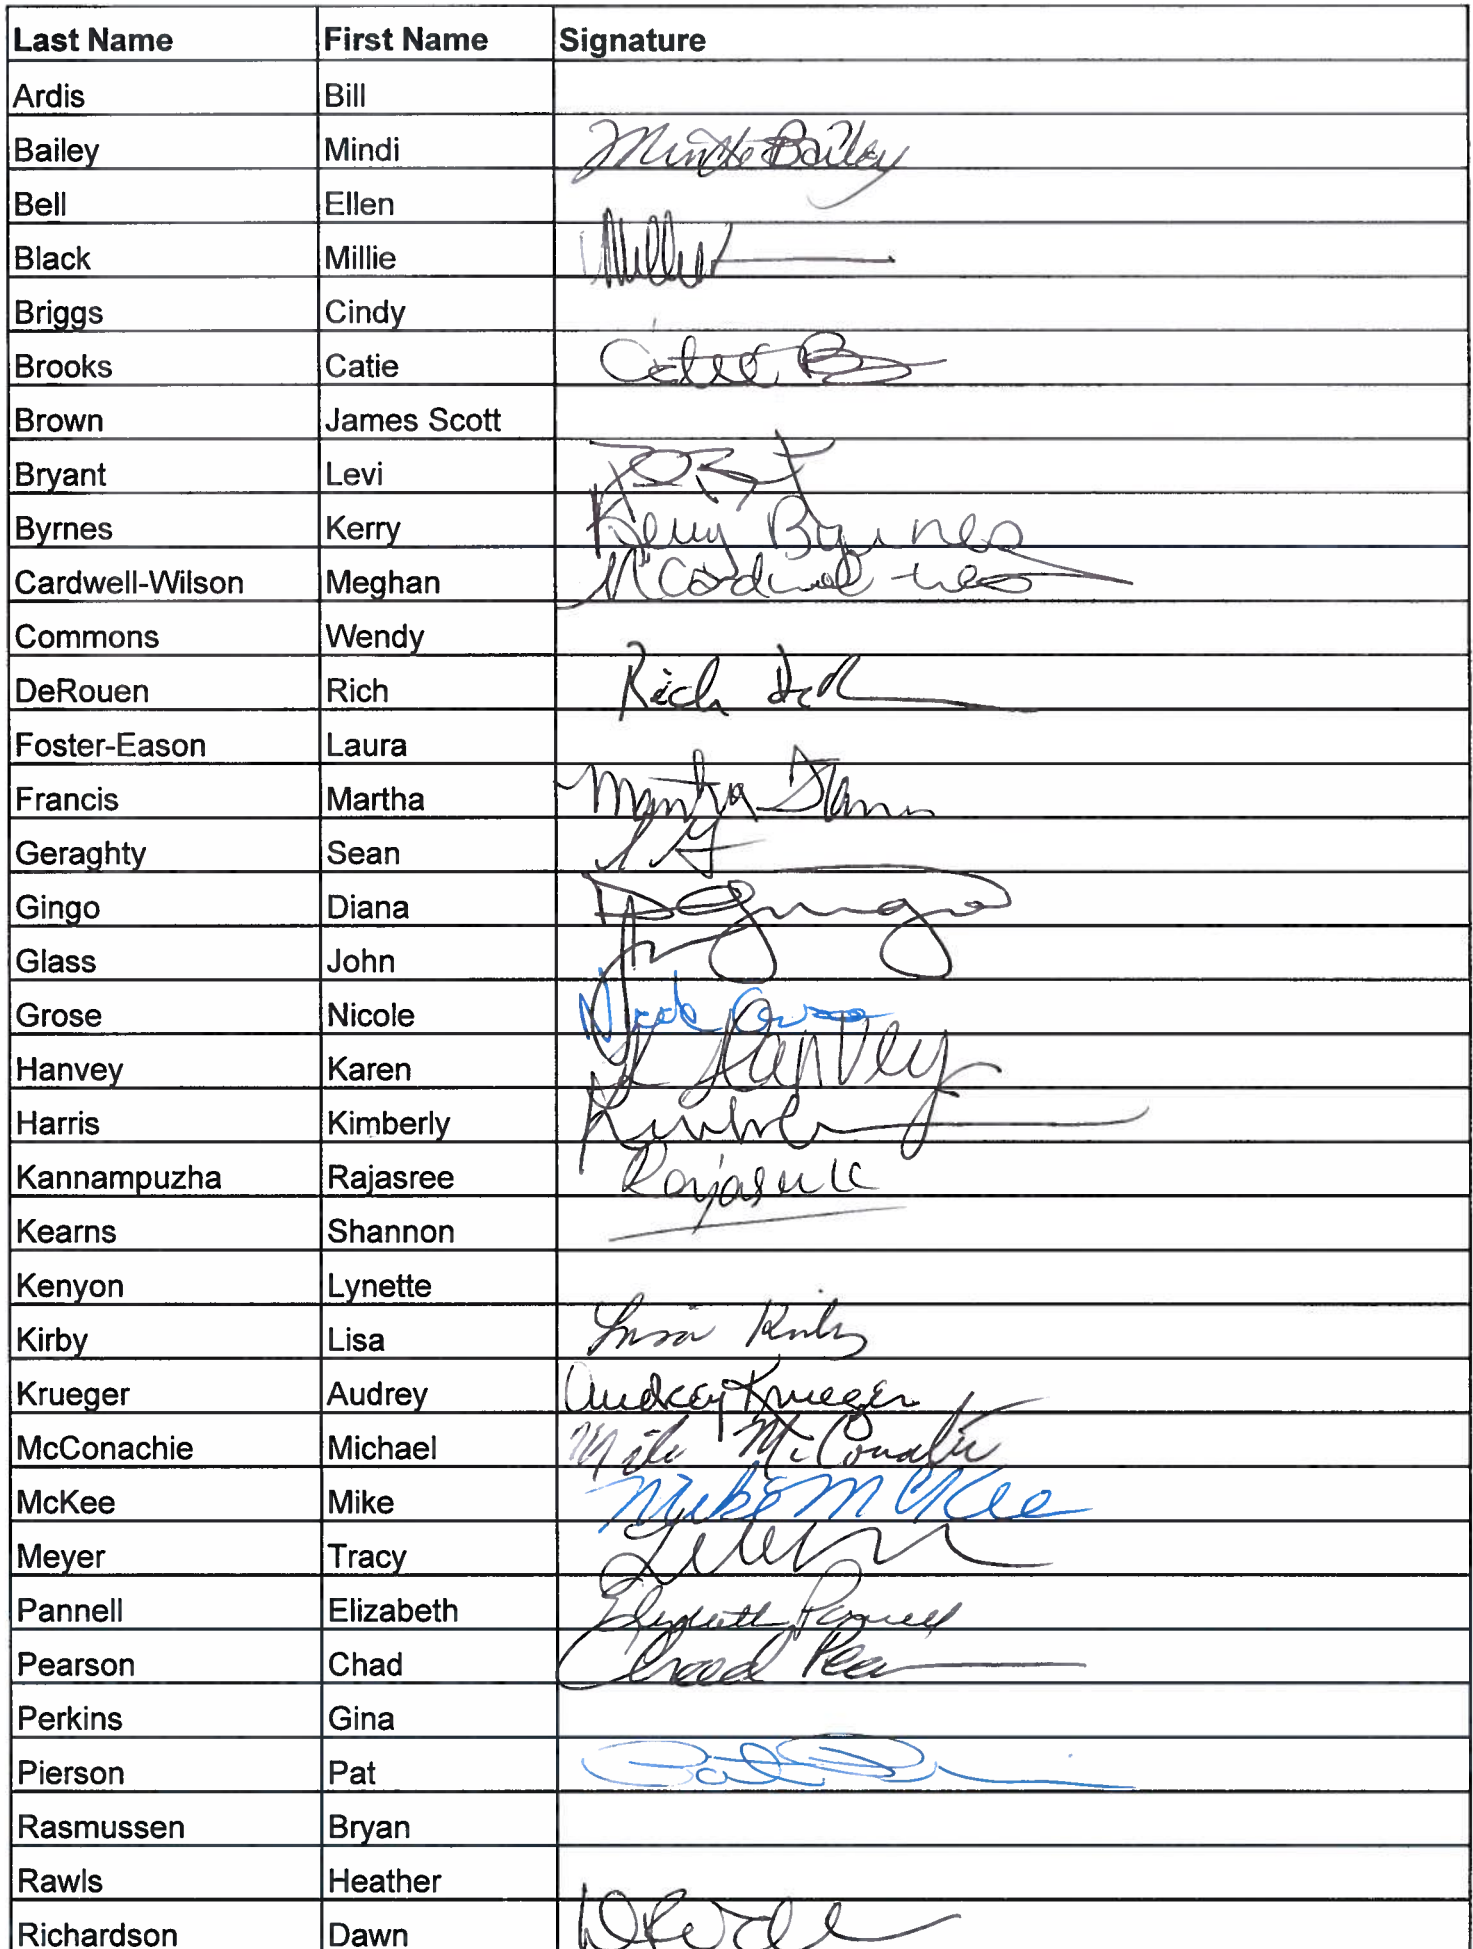 Last Name First Name Signature
Ardis Bill
Bailey Mindi Mindi Bailey
Bell Ellen
Black Millie Millie
Briggs Cindy
Brooks Catie
Brown James Scott
Bryant Levi
Byrnes Kerry Kerry Byrnes
Cardwell-Wilson Meghan
Commons Wendy
DeRouen Rich Rich
Foster-Eason Laura
Francis Martha Martha
Geraghty Sean
Gingo Diana D Gingo
Glass John
Grose Nicole
Hanvey Karen K Hanvey
Harris Kimberly
Kannampuzha Rajasree
Kearns Shannon
Kenyon Lynette
Kirby Lisa Lisa Kirby
Krueger Audrey Audrey Krueger
McConachie Michael Mike McConachie
McKee Mike Mike McKee
Meyer Tracy
Pannell Elizabeth Elizabeth Pannell
Pearson Chad Chad
Perkins Gina
Pierson Pat Pat
Rasmussen Bryan
Rawls Heather
Richardson Dawn